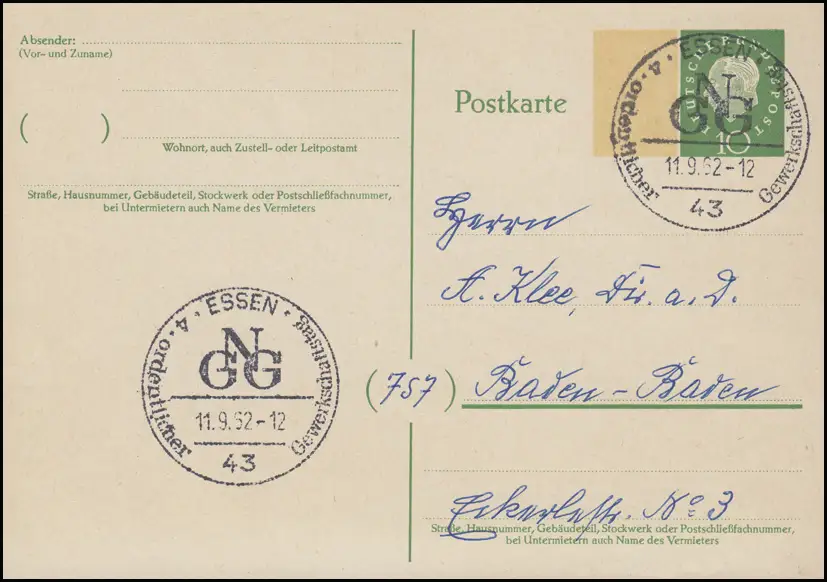 Absender:
(Vor- und Zuname)
( )
Wohnort, auch Zustell- oder Leitpostamt
Straße, Hausnummer, Gebäudeteil, Stockwerk oder Postschließfachnummer,
bei Untermietern auch Name des Vermieters
Postkarte
DEUTSCHE BUNDESPOST
10
ESSEN
4. ordentlicher Gewerkschaftstag
NGG
11.9.62-12
43
Herrn
A. Klee, Dir. a. D.
(757) Baden-Baden
Eckerlestr. No 3
Straße, Hausnummer, Gebäudeteil, Stockwerk oder Postschließfachnummer,
bei Untermietern auch Name des Vermieters
ESSEN
4. ordentlicher Gewerkschaftstag
NGG
11.9.62-12
43